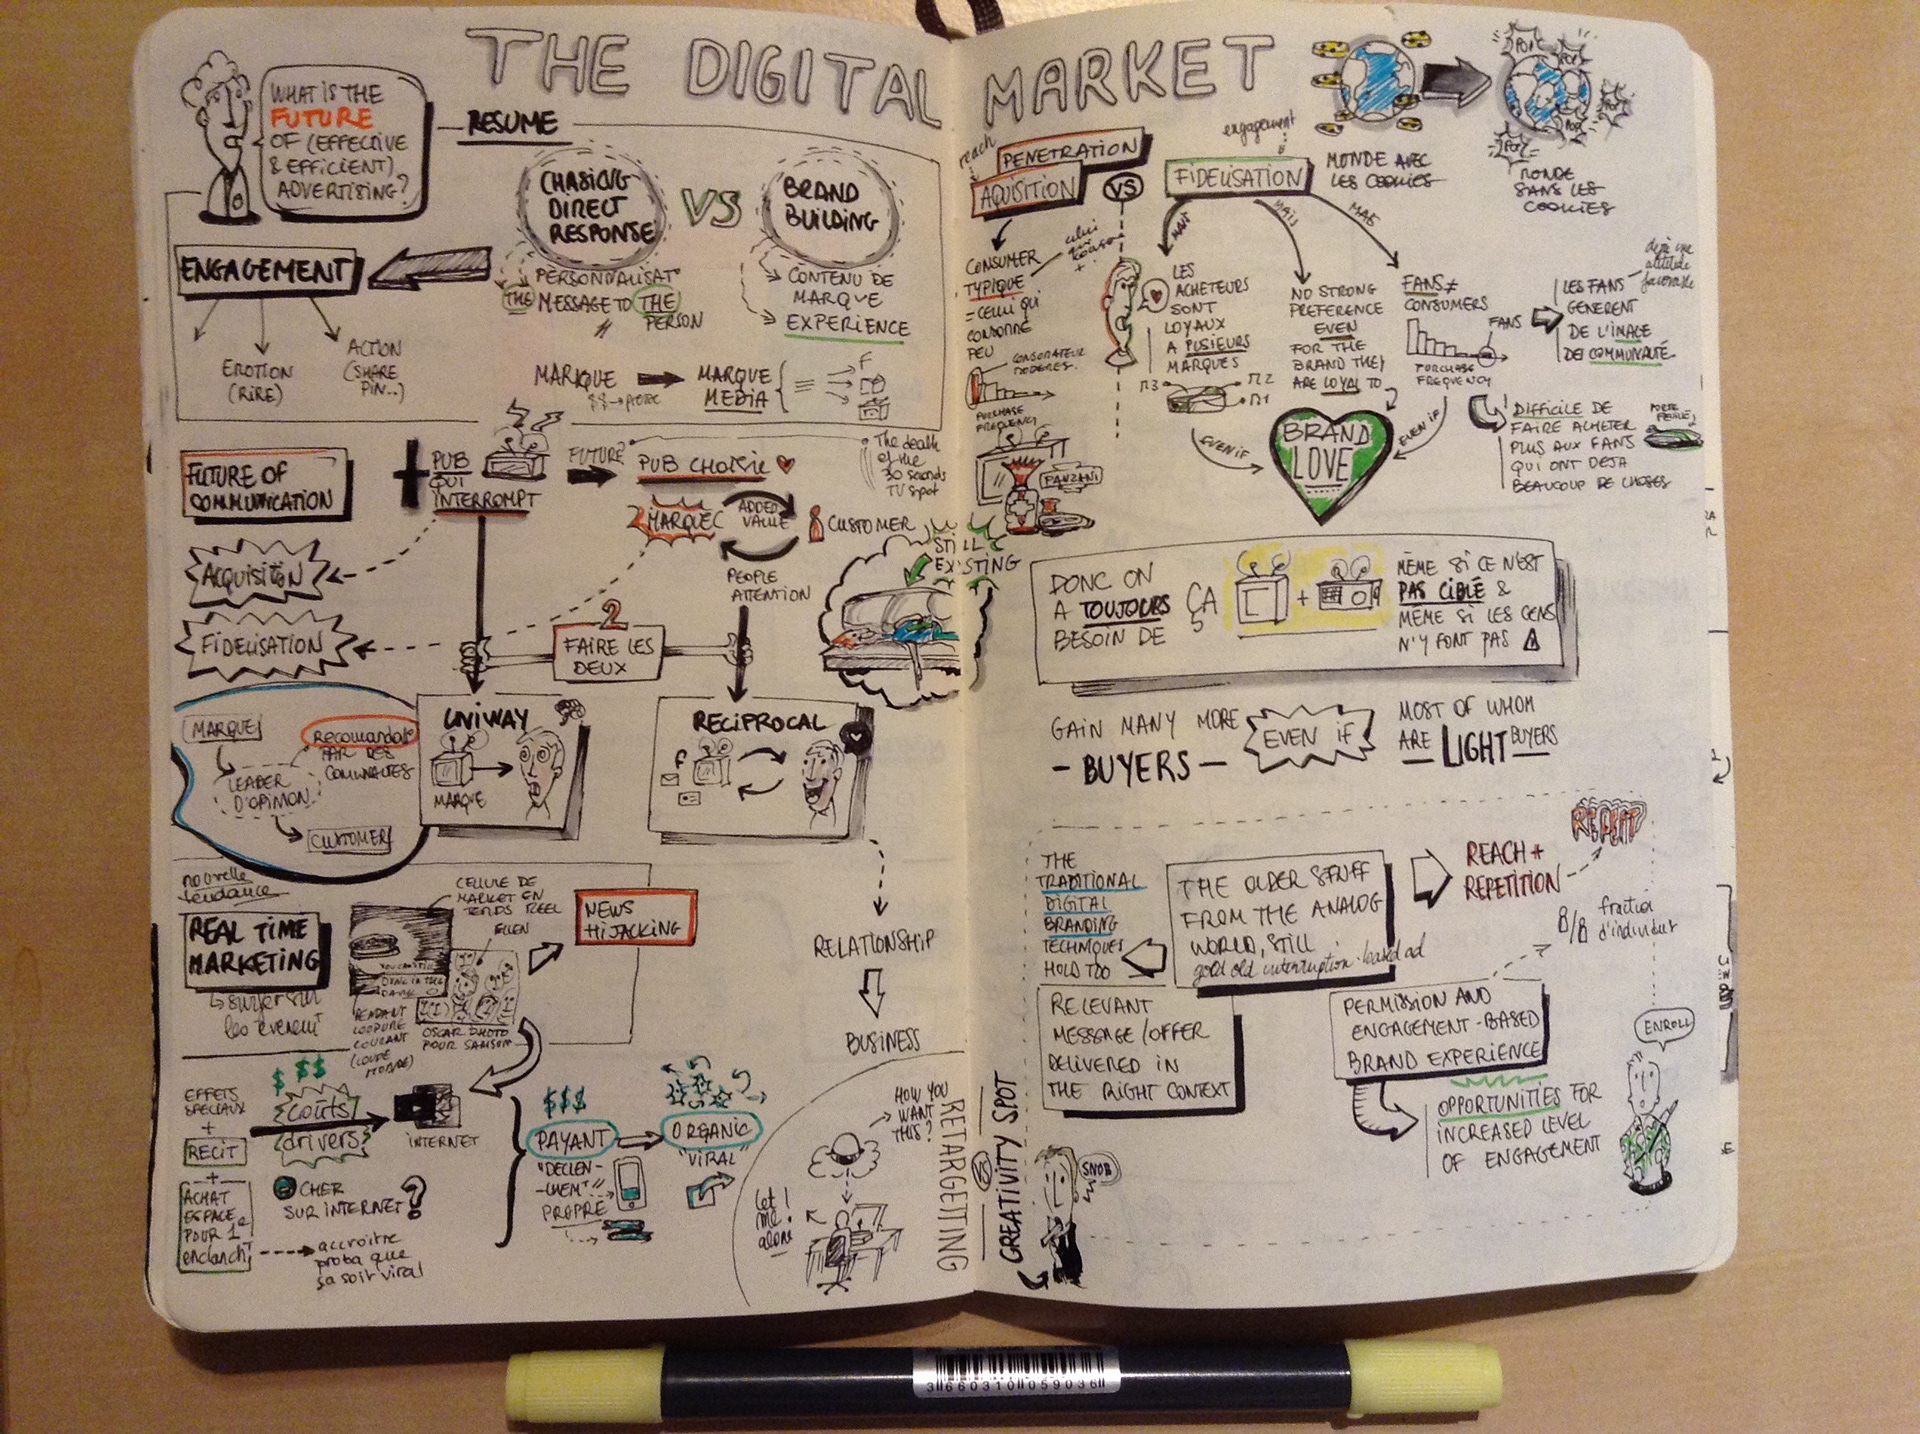 THE DIGITAL MARKET
WHAT IS THE
FUTURE
OF (EFFECTIVE
& EFFICIENT)
ADVERTISING?
RESUME
CHASING
DIRECT
RESPONSE
VS
BRAND
BUILDING
ENGAGEMENT
THE MESSAGE TO THE
PERSON
CONTENU DE
MARQUE
EXPERIENCE
EMOTION
(RIRE)
ACTION
(SHARE
PIN...)
MARQUE
MARQUE
MEDIA
FUTURE OF
COMMUNICATION
PUB
QUI
INTERROMPT
FUTURE?
PUB CHOISIE
The death
of the
30 seconds
TV spot
MARQUE
ADDED
VALUE
CUSTOMER
PEOPLE
ATTENTION
STILL
EXISTING
ACQUISITION
FIDELISATION
2
FAIRE LES
DEUX
MARQUE
RECOMANDAT°
PAR DES
COMMUNAUTES
LEADER
D'OPINION
CUSTOMER
UNIWAY
MARQUE
RECIPROCAL
RELATIONSHIP
BUSINESS
nouvelle
tendance
REAL TIME
MARKETING
surfer sur
les évenemt
CELLULE DE
MARKET EN
TEMPS REEL
ELLEN
YOU CAN STILL
DUNK IN THE
DARK
PENDANT
COUPURE
COURANT
OSCAR PHOTO
POUR SAMSUM
NEWS
HIJACKING
EFFETS
SPECIAUX
+
RECIT
+
ACHAT
ESPACE
POUR 1e
enclencht
$ $$
coûts
drivers
INTERNET
CHER
SUR INTERNET?
accroitre
proba que
ça soit viral
$$$
PAYANT
ORGANIC
"VIRAL"
"DECLEN-
-CHEMt"
PROPRE
HOW YOU
WANT
THIS?
Let
me
alone!
RETARGETING
VS
CREATIVITY SPOT
SNOB
reach
PENETRATION
AQUISITION
VS
engagement
FIDELISATION
MONDE AVEC
LES COOKIES
MONDE
SANS LES
COOKIES
POP!
POP!
POP!
POP!
CONSUMER
TYPIQUE
= CELUI QUI
CONSOMME
PEU
PURCHASE
FREQUENCY
MAIS
MAIS
MAIS
LES
ACHETEURS
SONT
LOYAUX
A PLUSIEURS
MARQUES
M3
M2
M1
NO STRONG
PREFERENCE
EVEN
FOR THE
BRAND THEY
ARE LOYAL TO
FANS ≠
CONSUMERS
FANS
PURCHASE
FREQUENCY
LES FANS
GENERENT
DE L'IMAGE
DE COMMUNAUTÉ
déjà une
attitude
favorable
DIFFICILE DE
FAIRE ACHETER
PLUS AUX FANS
QUI ONT DEJA
BEAUCOUP DE CHOSES
PORTE
FEUILLE
EVEN IF
BRAND
LOVE
EVEN IF
PANZANI
DONC ON
A TOUJOURS
BESOIN DE
ÇA
+
MÊME SI CE N'EST
PAS CIBLÉ &
MÊME SI LES GENS
N'Y FONT PAS
GAIN MANY MORE
- BUYERS -
EVEN IF
MOST OF WHOM
ARE LIGHT BUYERS
THE
TRADITIONAL
DIGITAL
BRANDING
TECHNIQUES
HOLD TOO
THE OLDER STUFF
FROM THE ANALOG
WORLD, STILL
good old interruption-based ad
REACH +
REPETITION
REPEAT
fraction
d'individus
RELEVANT
MESSAGE/OFFER
DELIVERED IN
THE RIGHT CONTEXT
PERMISSION AND
ENGAGEMENT-BASED
BRAND EXPERIENCE
OPPORTUNITIES FOR
INCREASED LEVEL
OF ENGAGEMENT
ENROLL
3 660310 059036